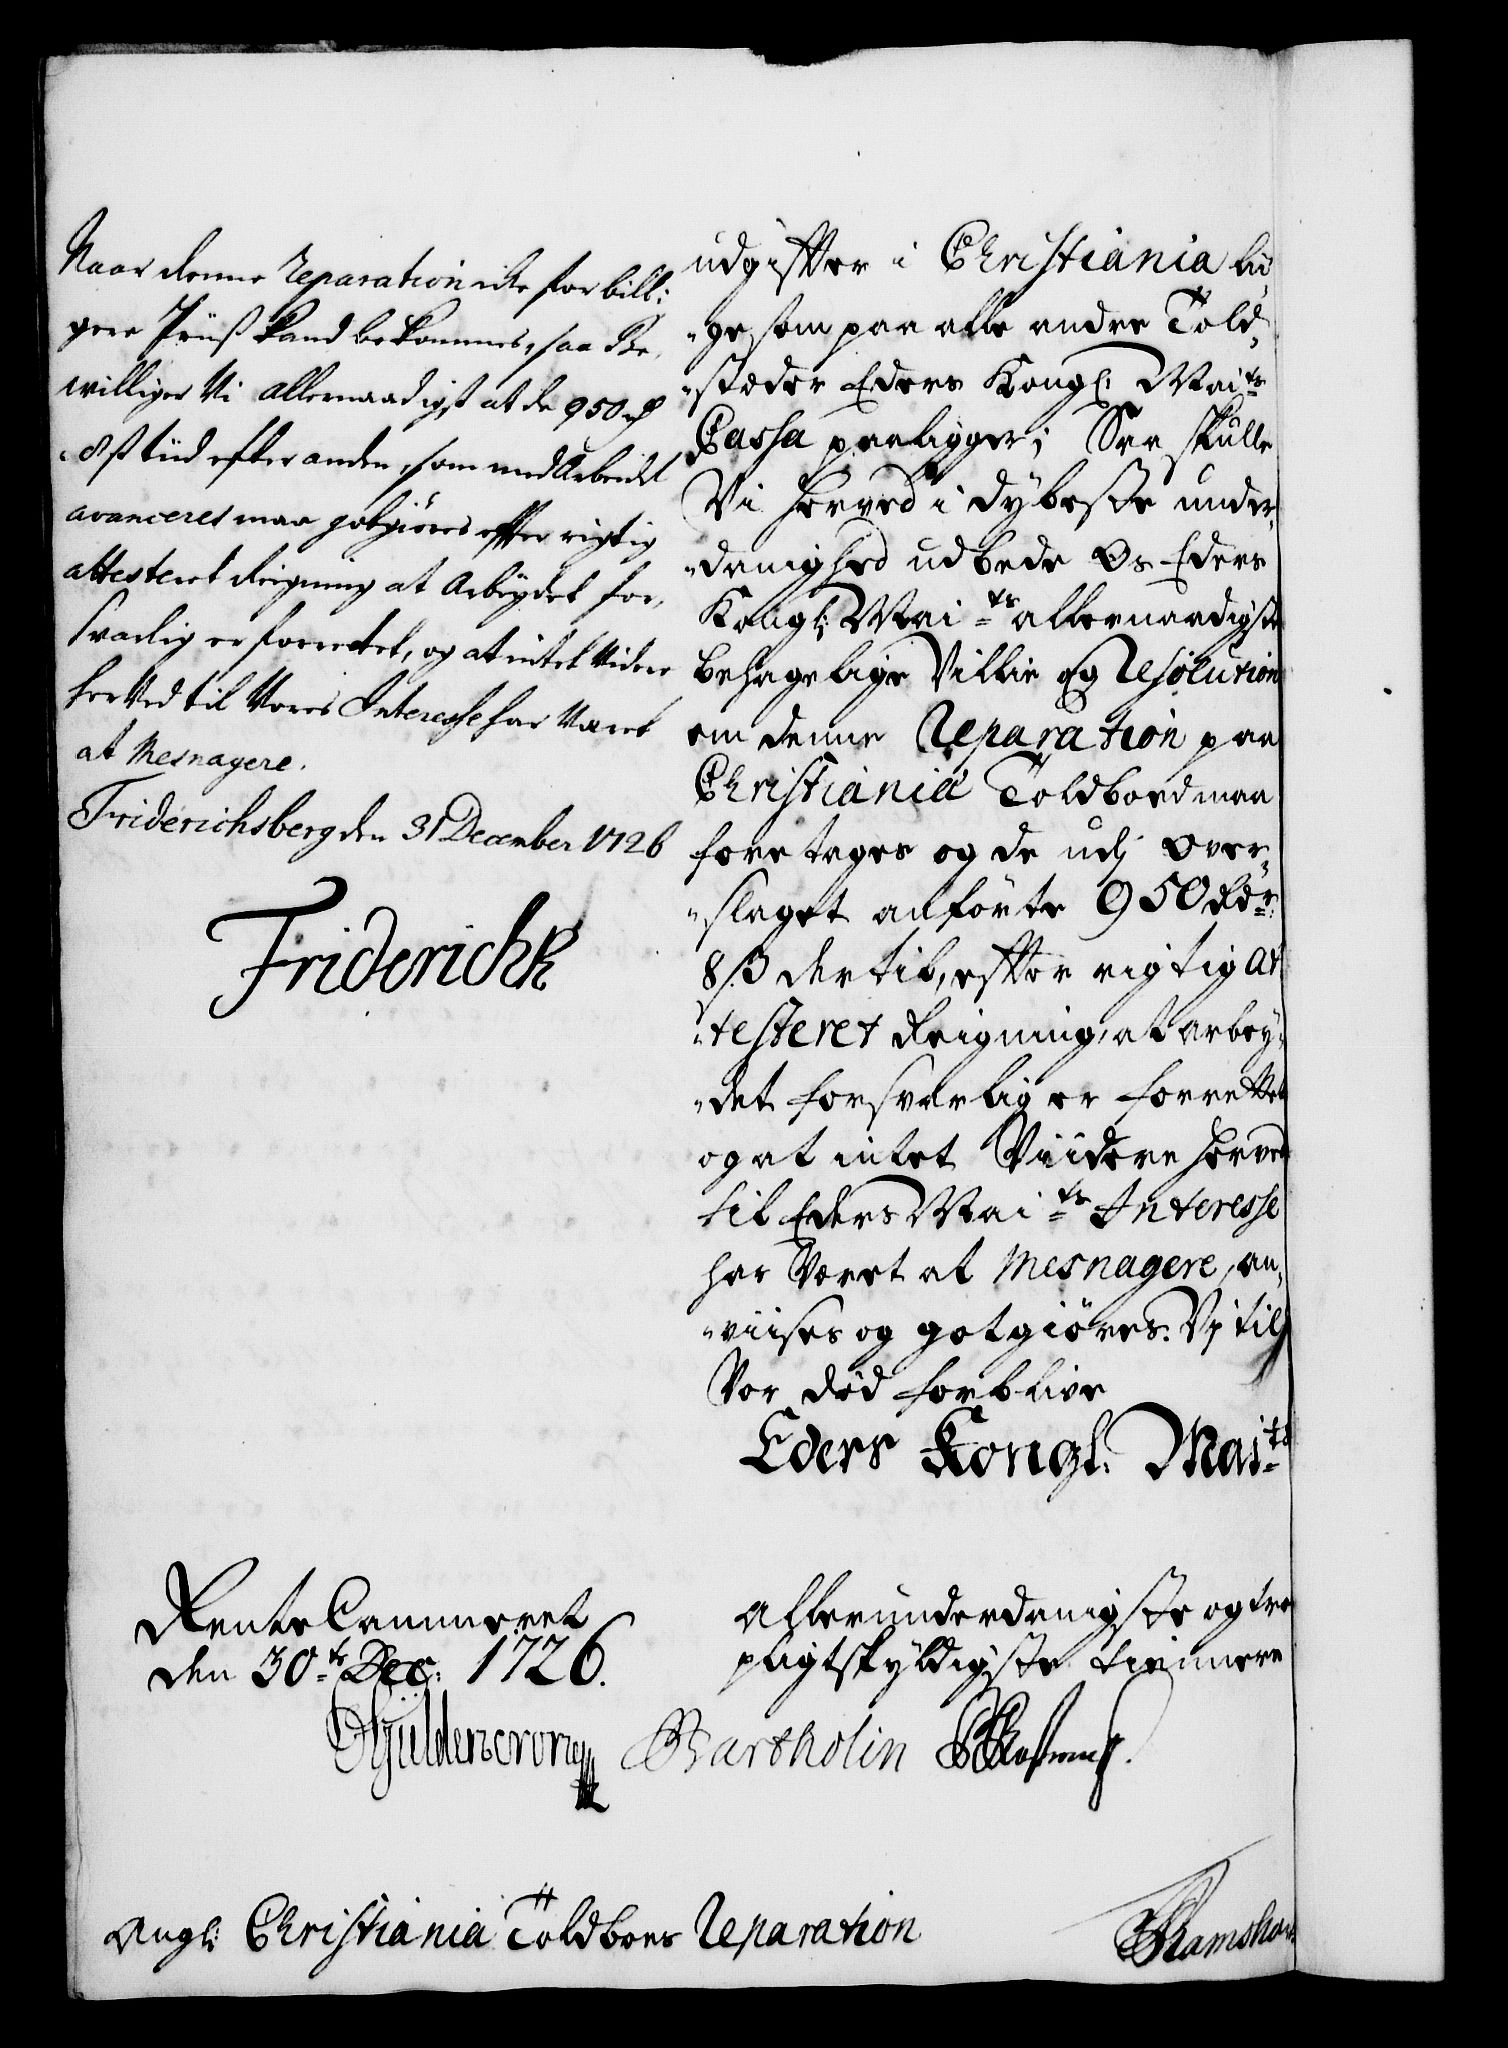 Naar denne Reparation icke for bill:
gere Priiss kand bekommes, saa Be,
williger Vi allernaadigst at de 950 rd
8 ß tiid efter anden, som med Arbeidet
avanceret maa gotgiöres efter rigtig
attesteret Reigning at Arbeydet for,
svarlig er forrettet, og at intet Videre
herved til Vores Interesse har Været
at Mesnagere.
Friderichsberg den 31 December 1726
Friderich R
udgifter i Christiania lii
"gesom paa alle andre Told
"stæder Eders Kongl: Mai:ts
Cassa paaligger; Saa skulle
Vi herved i dybeste under
"danighed udbede Os Eders
Kongl: Mai:ts allernaadigste
behagelige Villie og Resolution
om denne Reparation paa
Christiania Toldboed maa
foretages og de udj Over
"slaget anførte 950 Rdr:
8 ß dertil, efter rigtig At
"testeret Reigning, at arbey
"det forsvarlig er forrettet
og at intet Viidere herved
til Eders Mai:ts Interesse
har Været at Mesnagere, an
"viises og gotgiöres. Vj til
Vor død forblive
Eders Kongl. Mai:ts
Rente Cammeret
den 30te Dec: 1726.
allerunderdanigste og tro
pligtskyldigste tiennere
Gÿldencrone Bartholin
Angl: Christiania Toldboes Reparation
Ramshart